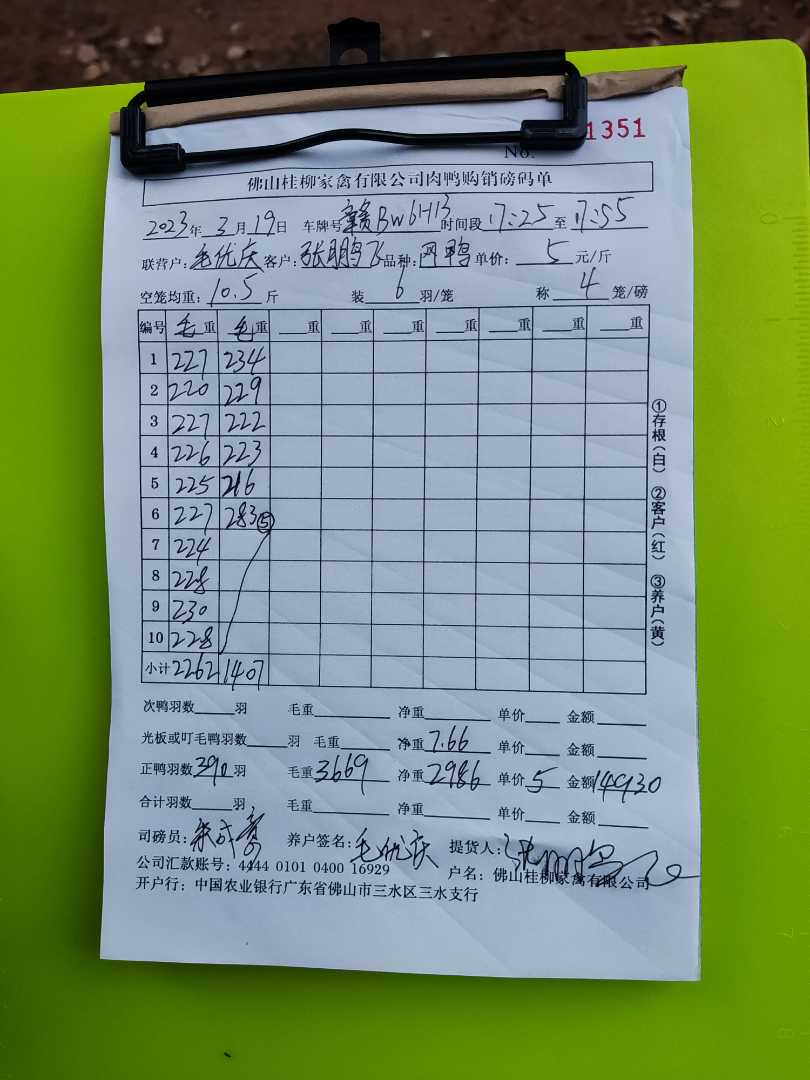 No. 1351
佛山桂柳家禽有限公司肉鸭购销磅码单
2023年 3月 19日 车牌号 赣BW6H13 时间段 17:25 至 17:55
联营户: 毛优庆 客户: 张鹏飞 品种: 四鸭 单价: 5 元/斤
空笼均重: 10.5 斤 装 6 羽/笼 称 4 笼/磅
编号 毛重 毛重 重 重 重 重 重 重 重
1 227 234
2 220 229
3 227 222
4 226 223
5 225 216
6 227 283 ⑤
7 224
8 228
9 230
10 228
小计 2262 1407
①存根(白) ②客户(红) ③养户(黄)
次鸭羽数 羽 毛重 净重 单价 金额
光板或叮毛鸭羽数 羽 毛重 净重 7.66 单价 金额
正鸭羽数 390 羽 毛重 3669 净重 2986 单价 5 金额 14930
合计羽数 羽 毛重 净重 单价 金额
司磅员: 养户签名: 毛优庆 提货人: 张鹏飞
公司汇款账号: 4444 0101 0400 16929 户名: 佛山桂柳家禽有限公司
开户行: 中国农业银行广东省佛山市三水区三水支行